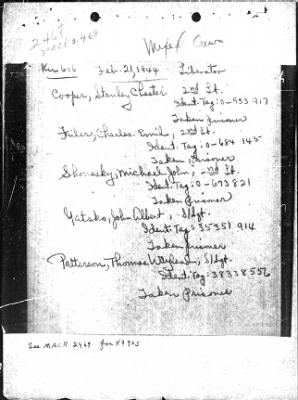 2468
MACR 2468
Crew
Ku 616 Feb. 21, 1944 Liberator
Cooper, Stanley Chester 2nd Lt.
Ident. Tag: 0-533 917
Taken prisoner
Charles Emil, 2nd Lt.
Ident. Tag: 0-684 145
Taken prisoner
Michael John, 2nd Lt.
Ident. Tag: 0-673821
Taken prisoner
Yatsko, John Albert, S/Sgt.
Ident. Tag: 35351 914
Taken prisoner
Patterson, Thomas S/Sgt.
Ident. Tag: 38338556
Taken prisoner
See MACR 2469 for